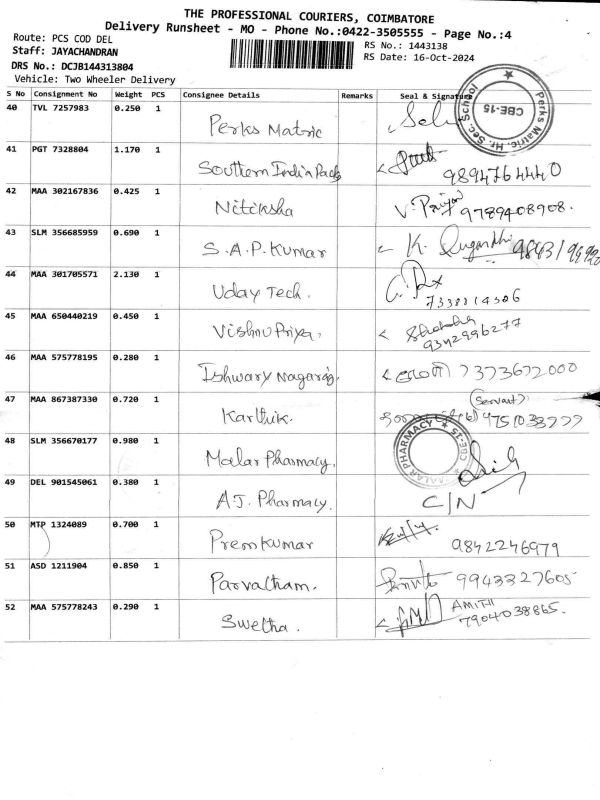 THE PROFESSIONAL COURIERS, COIMBATORE
Delivery Runsheet - MO - Phone No.:0422-3505555 - Page No.:4
Route: PCS COD DEL
RS No.: 1443138
Staff: JAYACHANDRAN
RS Date: 16-Oct-2024
DRS No.: DCJB144313804
Vehicle: Two Wheeler Delivery
S No Consignment No Weight PCS Consignee Details Remarks Seal & Signature
40 TVL 7257983 0.250 1 Perks Matric
Perks Matric. Hr. Sec. School CBE-15
41 PGT 7328804 1.170 1 Southern India Pack 9894764440
42 MAA 302167836 0.425 1 Nitiksha V. Priya 9789408908.
43 SLM 356685959 0.690 1 S.A.P. Kumar K. Sugandhi
44 MAA 301705571 2.130 1 Uday Tech. 7338814306
45 MAA 650440219 0.450 1 Vishnu Priya. 9342996277
46 MAA 575778195 0.280 1 Ishwary Nagaraj. 7373672000
47 MAA 867387330 0.720 1 Karthik. (Servant)
48 SLM 356670177 0.980 1 Malar Pharmacy.
MALAR PHARMACY CBE-15
49 DEL 901545061 0.380 1 A.J. Pharmacy. C/N
50 MTP 1324089 0.700 1 Premkumar 9842246979
51 ASD 1211904 0.850 1 Parvatham. 9943327605
52 MAA 575778243 0.290 1 Swetha. AMITH
7904038865.